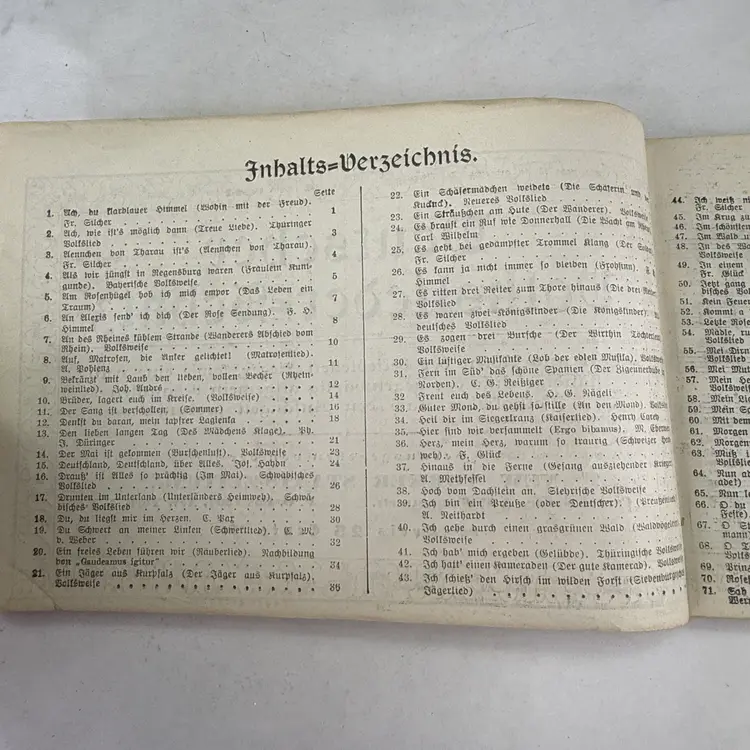 Inhalts=Verzeichnis.
Seite
1. Ach, du klarblauer Himmel (Wohin mit der Freud).
Fr. Silcher . . . 1
2. Ach, wie ist's möglich dann (Treue Liebe). Thüringer
Volkslied . . . 3
3. Aennchen von Tharau ist's (Aennchen von Tharau).
Fr. Silcher . . . 4
4. Als wir jüngst in Regensburg waren (Fräulein Kuni-
gunde). Bayerische Volksweise . . . 5
5. Am Rosenhügel hob ich mich empor (Das Leben ein
Traum) . . . 7
6. An Alexis send' ich dich (Der Rose Sendung). F. H.
Himmel . . . 8
7. An des Rheines kühlem Strande (Wanderers Abschied vom
Rhein). Volksweise . . . 10
8. Auf, Matrosen, die Anker gelichtet! (Matrosenlied).
A. Pohlenz . . . 11
9. Bekränzt mit Laub den lieben, vollen Becher (Rhein-
weinlied). Joh. André . . . 12
10. Brüder, lagert euch im Kreise. (Volksweise) . . . 14
11. Der Sang ist verschollen, (Sommer) . . . 16
12. Denkst du daran, mein tapfrer Lagienka . . . 18
13. Den lieben langen Tag (Des Mädchens Klage). Ph.
J. Düringer . . . 21
14. Der Mai ist gekommen (Burschenlust). Volksweise . 23
15. Deutschland, Deutschland, über Alles. Jos. Haydn . 24
16. Drauß' ist Alles so prächtig (Im Mai). Schwäbisches
Volkslied . . . 26
17. Drunten im Unterland (Unterländers Heimweh). Schwä-
bisches Volkslied . . . 28
18. Du, du liegst mir im Herzen. C. Pax . . . 30
19. Du Schwert an meiner Linken (Schwertlied). C. M.
v. Weber . . . 32
20. Ein freies Leben führen wir (Räuberlied). Nachbildung
von „Gaudeamus igitur" . . . 34
21. Ein Jäger aus Kurpfalz (Der Jäger aus Kurpfalz).
Volksweise . . . 36
22. Ein Schäfermädchen weidete (Die Schäferin und der
Kuckuck). Neueres Volkslied
23. Ein Sträußchen am Hute (Der Wanderer). Volksweise
24. Es braust ein Ruf wie Donnerhall (Die Wacht am Rhein)
Carl Wilhelm
25. Es geht bei gedämpfter Trommel Klang (Der
Fr. Silcher
26. Es kann ja nicht immer so bleiben (Frohsinn).
Himmel
27. Es ritten drei Reiter zum Thore hinaus (Die drei
Volkslied
28. Es waren zwei Königskinder (Die Königskinder).
deutsches Volkslied
29. Es zogen drei Bursche (Der Wirthin Töchterlein)
Volksweise
30. Ein lustiger Musikante (Lob der edlen Musika).
31. Fern im Süd' das schöne Spanien (Der Zigeunerbube
Norden). C. G. Reißiger
32. Freut euch des Lebens. H. G. Nägeli
33. Guter Mond, du gehst so stille (An den Mond).
34. Heil dir im Siegerkranz (Kaiserlied). Henry Carey
35. Hier sind wir versammelt (Ergo bibamus). M. Eberwein
36. Herz, mein Herz, warum so traurig (Schweizer
weh). F. Glück
37. Hinaus in die Ferne (Gesang ausziehender Krieger)
A. Methfessel
38. Hoch vom Dachstein an. Steyrische Volksweise
39. Ich bin ein Preuße (oder Deutscher). (Preußenlied)
A. Neithardt
40. Ich gehe durch einen grasgrünen Wald
Volksweise
41. Ich hab' mich ergeben (Gelübde). Thüringische
42. Ich hatt' einen Kameraden (Der gute Kamerad).
43. Ich schieß' den Hirsch im wilden Forst
Jägerlied)
44. Ich weiß
Fr. Silcher
45. Im Krug
46. Im schönsten
47. Im Wald
48. In des
Volksweise
49. In einem
Fr. Glück
50. Jetzt gang
bisches
51. Kein Feuer
52. Kommt a
53. Letzte
54. Mädle,
Volkslied
55. Mei
56. Mei
57. Mein
Volksweise
58. Mein
59. Mein
60. Mit
61. Morgen
62. Morgen
63. Muß i
Volkslied
64. Nun
65. Nun
66. O du
67. O
68. O
69. Prinz
70.
71. Sah